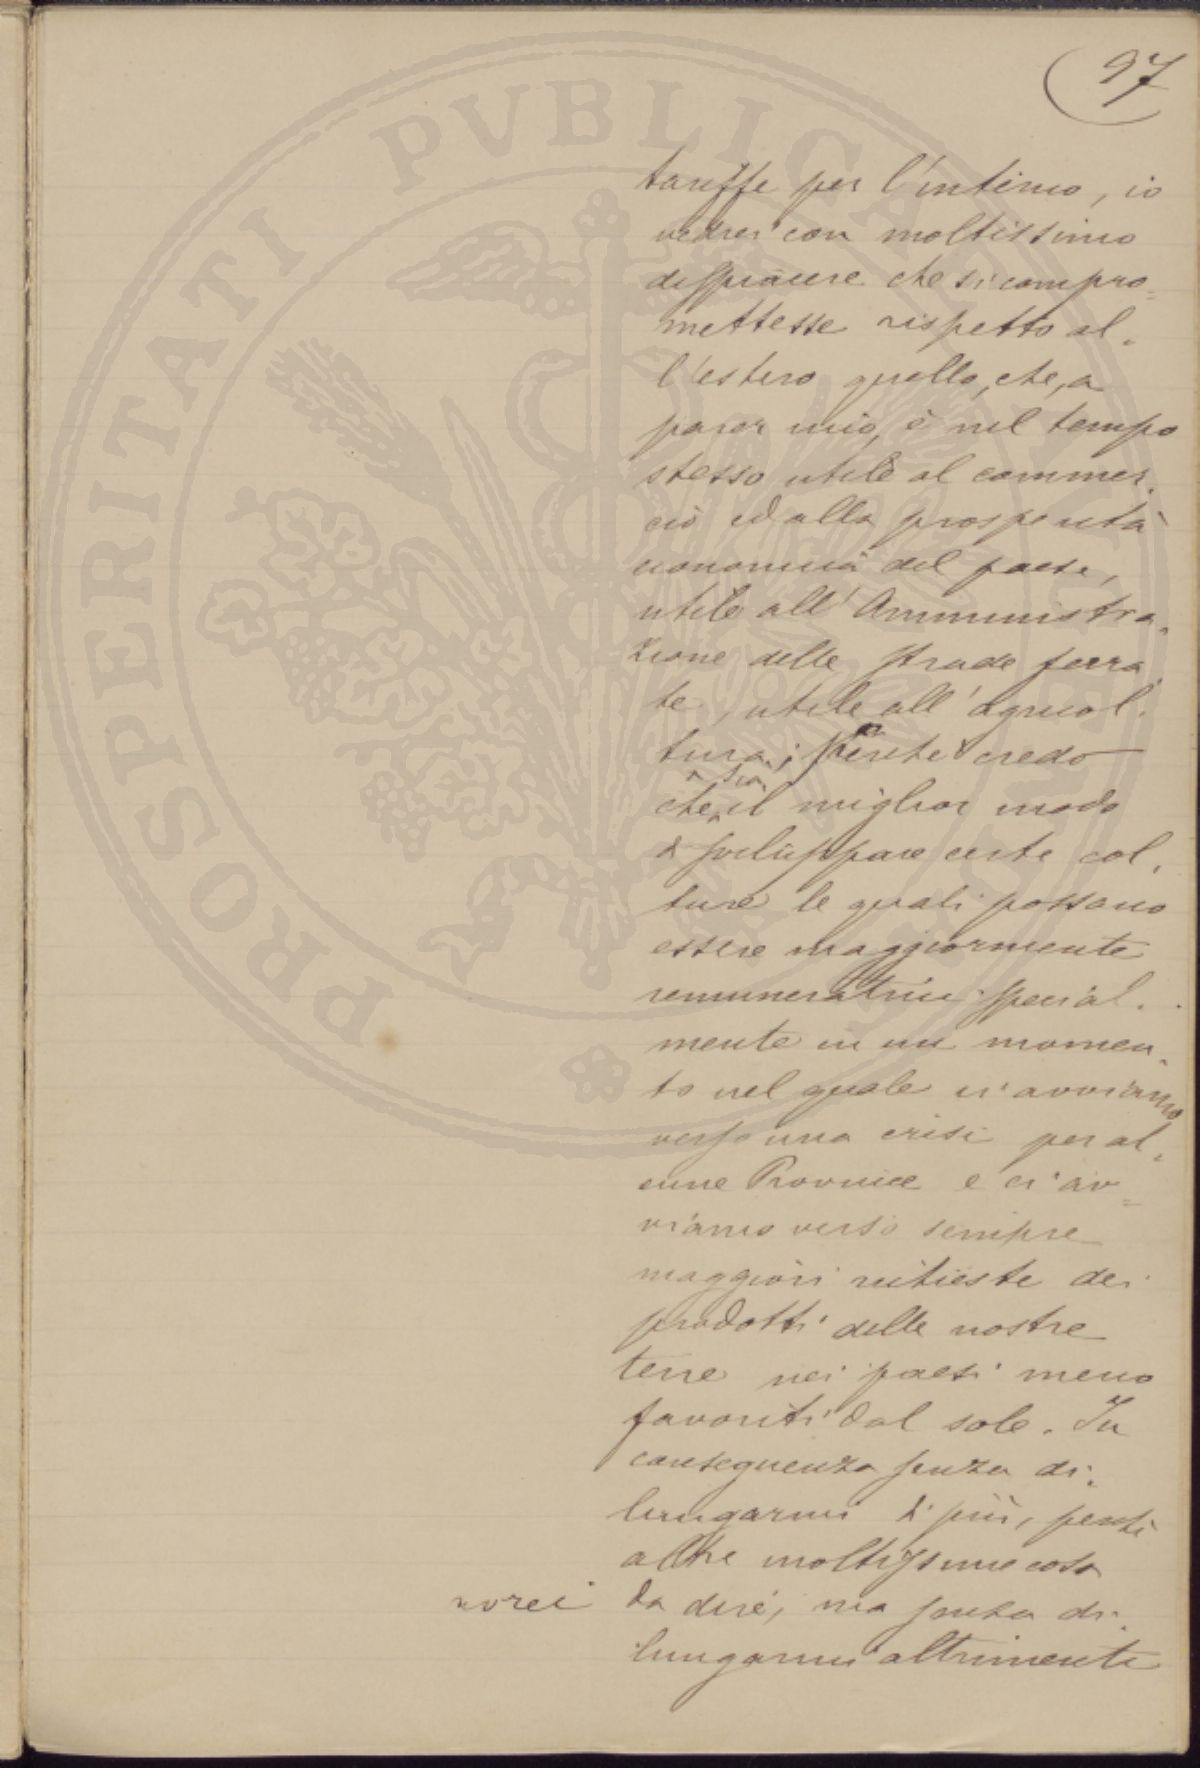 97
tariffe per l'interno, io
vedrei con moltissimo
dispiacere che si compro=
mettesse rispetto al-
l'estero quello, che, a
parer mio, è nel tempo
stesso utile al commer-
cio ed alla prosperità
economica del paese,
utile all'Amministra-
zione delle strade ferra-
te, utile all'agricol-
tura; perché credo
che sia il miglior modo
di sviluppare certe col-
ture le quali possano
essere maggiormente
remuneratrici special-
mente in un momen-
to nel quale ci avviamo
verso una crisi per al-
cune Provincie e ci av=
viamo verso sempre
maggiori richieste dei
prodotti delle nostre
terre nei paesi meno
favoriti dal sole. In
conseguenza senza di-
lungarmi di più, perché
altre moltissime cose
avrei da dire, ma senza di-
lungarmi altrimenti
PROSPERITATI PVBLICAE